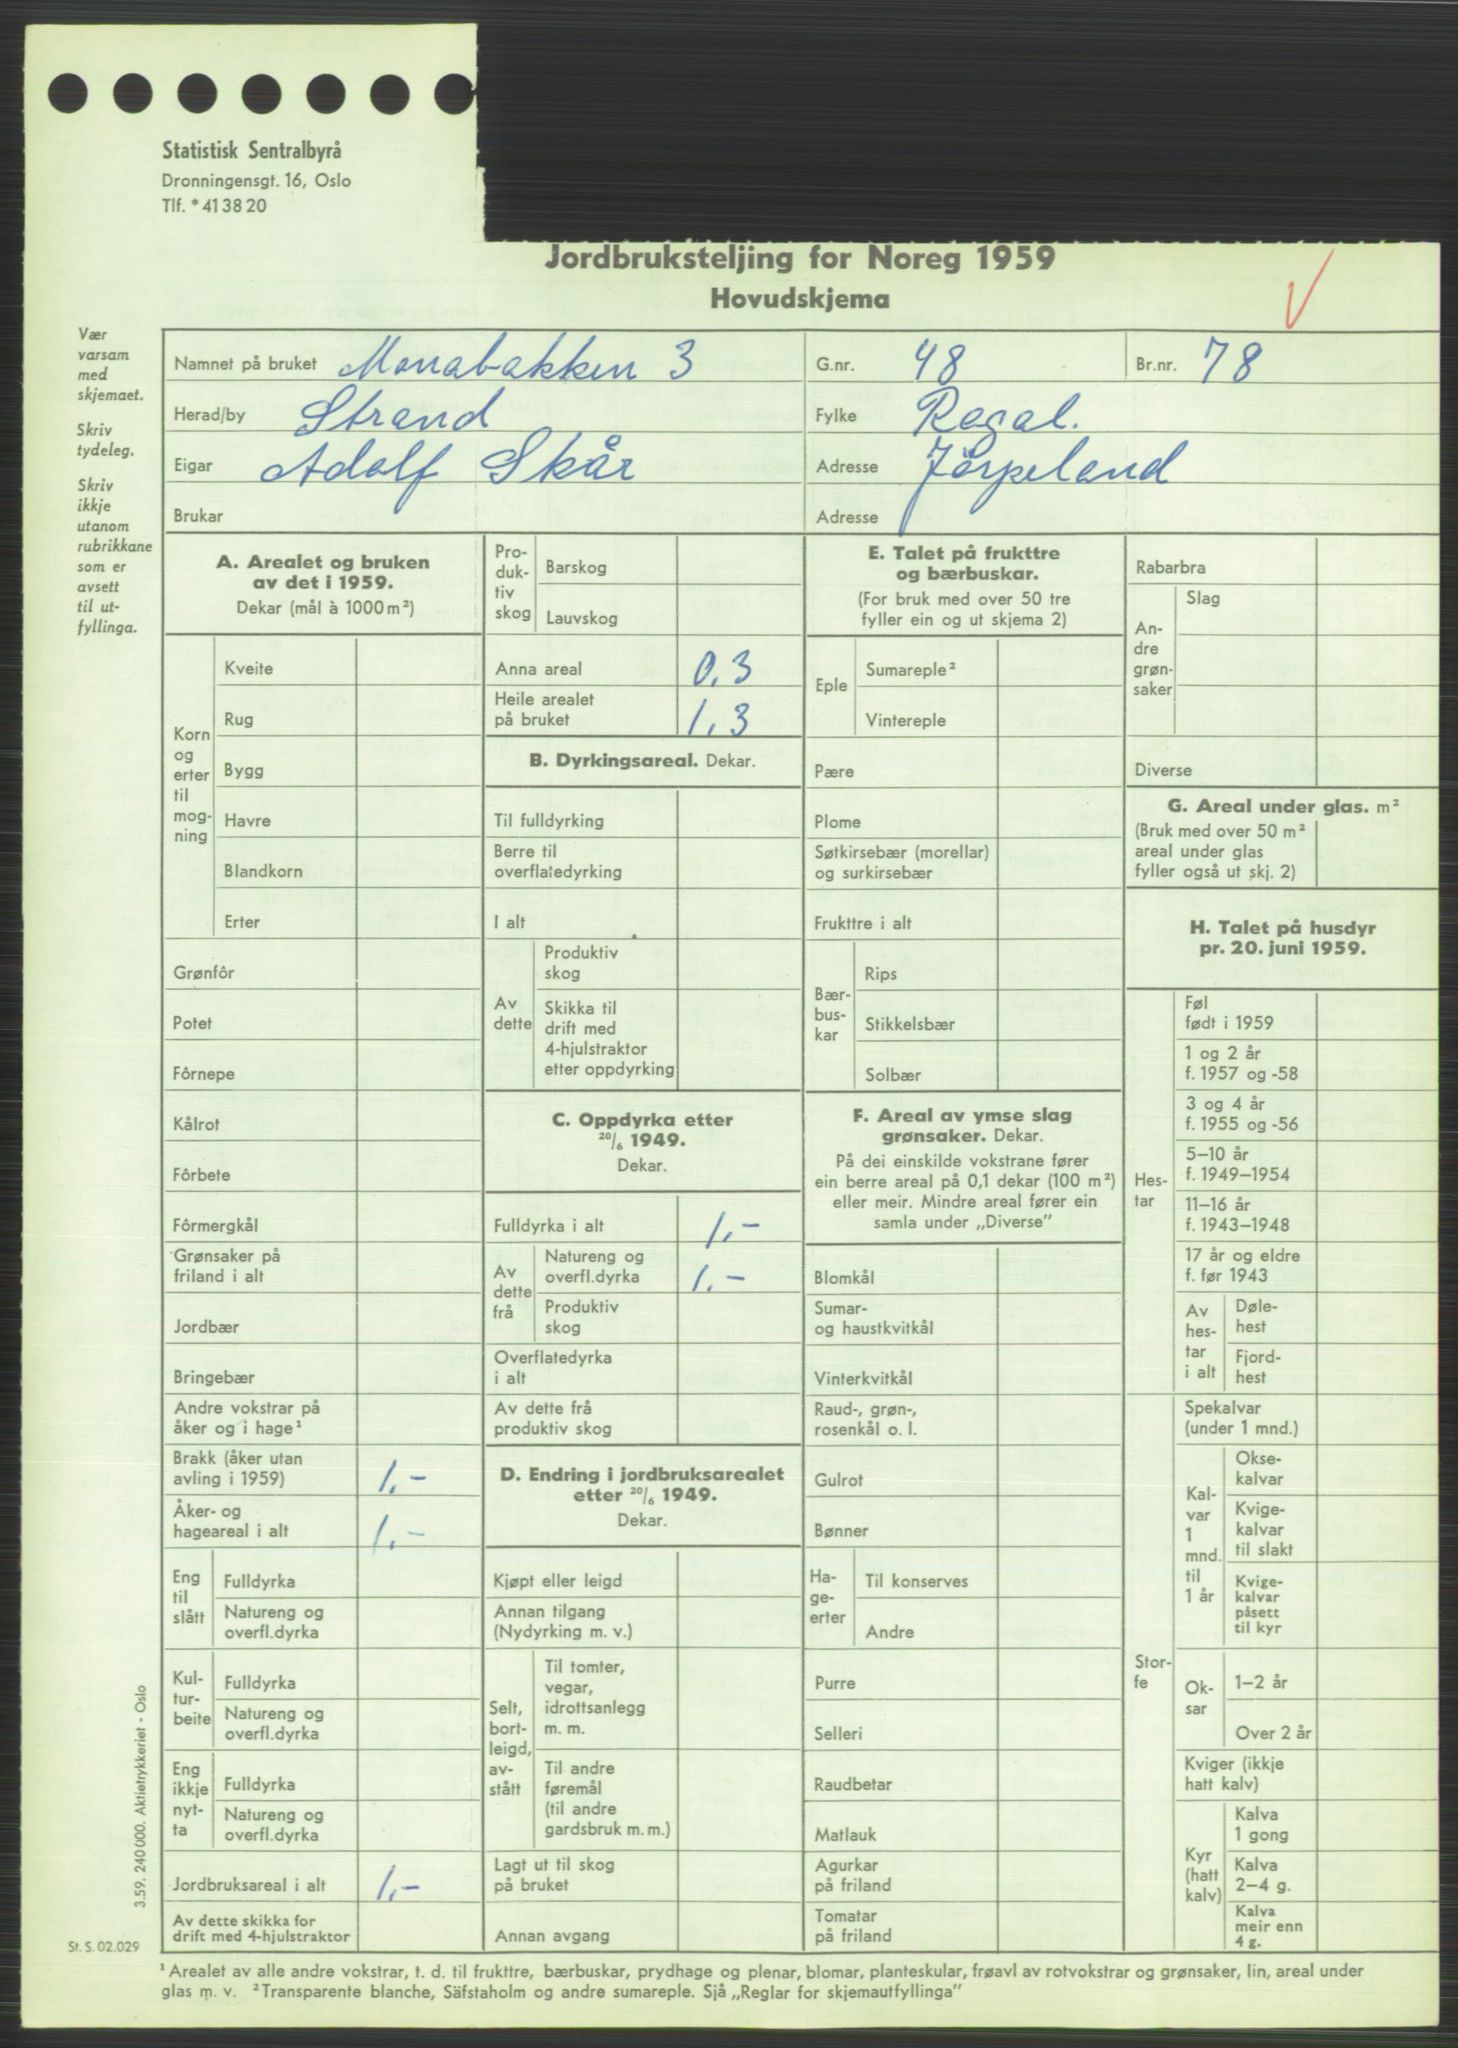 Statistisk Sentralbyrå
Dronningensgt. 16, Oslo
Tlf. * 41 38 20
Jordbruksteljing for Noreg 1959
Hovudskjema
V
Vær
varsam
med
skjemaet.
Skriv
tydeleg.
Skriv
ikkje
utanom
rubrikkane
som er
avsett
til ut-
fyllinga.
Namnet på bruket Monabakken 3 G.nr. 48 Br.nr. 78
Herad/by Strand Fylke Rogal.
Eigar Adolf Skår Adresse Jörpeland
Brukar Adresse
A. Arealet og bruken
av det i 1959.
Dekar (mål à 1000 m²)
Korn
og
erter
til
mog-
ning
Kveite
Rug
Bygg
Havre
Blandkorn
Erter
Grønfôr
Potet
Fôrnepe
Kålrot
Fôrbete
Fôrmergkål
Grønsaker på
friland i alt
Jordbær
Bringebær
Andre vokstrar på
åker og i hage¹
Brakk (åker utan
avling i 1959) 1.-
Åker- og
hageareal i alt 1.-
Eng
til
slått
Fulldyrka
Natureng og
overfl.dyrka
Kul-
tur-
beite
Fulldyrka
Natureng og
overfl.dyrka
Eng
ikkje
nyt-
ta
Fulldyrka
Natureng og
overfl.dyrka
Jordbruksareal i alt 1.-
Av dette skikka for
drift med 4-hjulstraktor
Pro-
duk-
tiv
skog
Barskog
Lauvskog
Anna areal 0.3
Heile arealet
på bruket 1.3
B. Dyrkingsareal. Dekar.
Til fulldyrking
Berre til
overflatedyrking
I alt
Av
dette
Produktiv
skog
Skikka til
drift med
4-hjulstraktor
etter oppdyrking
C. Oppdyrka etter
20/6 1949.
Dekar.
Fulldyrka i alt 1.-
Av
dette
frå
Natureng og
overfl.dyrka 1.-
Produktiv
skog
Overflatedyrka
i alt
Av dette frå
produktiv skog
D. Endring i jordbruksarealet
etter 20/6 1949.
Dekar.
Kjøpt eller leigd
Annan tilgang
(Nydyrking m. v.)
Selt,
bort-
leigd,
av-
stått
Til tomter,
vegar,
idrottsanlegg
m. m.
Til andre
føremål
(til andre
gardsbruk m. m.)
Lagt ut til skog
på bruket
Annan avgang
E. Talet på frukttre
og bærbuskar.
(For bruk med over 50 tre
fyller ein og ut skjema 2)
Eple
Sumareple²
Vintereple
Pære
Plome
Søtkirsebær (morellar)
og surkirsebær
Frukttre i alt
Bær-
bus-
kar
Rips
Stikkelsbær
Solbær
F. Areal av ymse slag
grønsaker. Dekar.
På dei einskilde vokstrane fører
ein berre areal på 0,1 dekar (100 m²)
eller meir. Mindre areal fører ein
samla under „Diverse”
Blomkål
Sumar-
og haustkvitkål
Vinterkvitkål
Raud-, grøn-,
rosenkål o. l.
Gulrot
Bønner
Ha-
ge-
erter
Til konserves
Andre
Purre
Selleri
Raudbetar
Matlauk
Agurkar
på friland
Tomatar
på friland
Rabarbra
An-
dre
grøn-
saker
Slag
Diverse
G. Areal under glas. m²
(Bruk med over 50 m²
areal under glas
fyller også ut skj. 2)
H. Talet på husdyr
pr. 20. juni 1959.
Hes-
tar
Føl
født i 1959
1 og 2 år
f. 1957 og -58
3 og 4 år
f. 1955 og -56
5–10 år
f. 1949–1954
11–16 år
f. 1943–1948
17 år og eldre
f. før 1943
Av
hes-
tar
i alt
Døle-
hest
Fjord-
hest
Stor-
fe
Spekalvar
(under 1 mnd.)
Kal-
var
1
mnd.
til
1 år
Okse-
kalvar
Kvige-
kalvar
til slakt
Kvige-
kalvar
påsett
til kyr
Ok-
sar
1–2 år
Over 2 år
Kviger (ikkje
hatt kalv)
Kyr
(hatt
kalv)
Kalva
1 gong
Kalva
2–4 g.
Kalva
meir enn
4 g.
3.59. 240 000. Aktietrykkeriet - Oslo
St. S. 02.029
¹ Arealet av alle andre vokstrar, t. d. til frukttre, bærbuskar, prydhage og plenar, blomar, planteskular, frøavl av rotvokstrar og grønsaker, lin, areal under
glas m. v. ² Transparente blanche, Säfstaholm og andre sumareple. Sjå „Reglar for skjemautfyllinga”